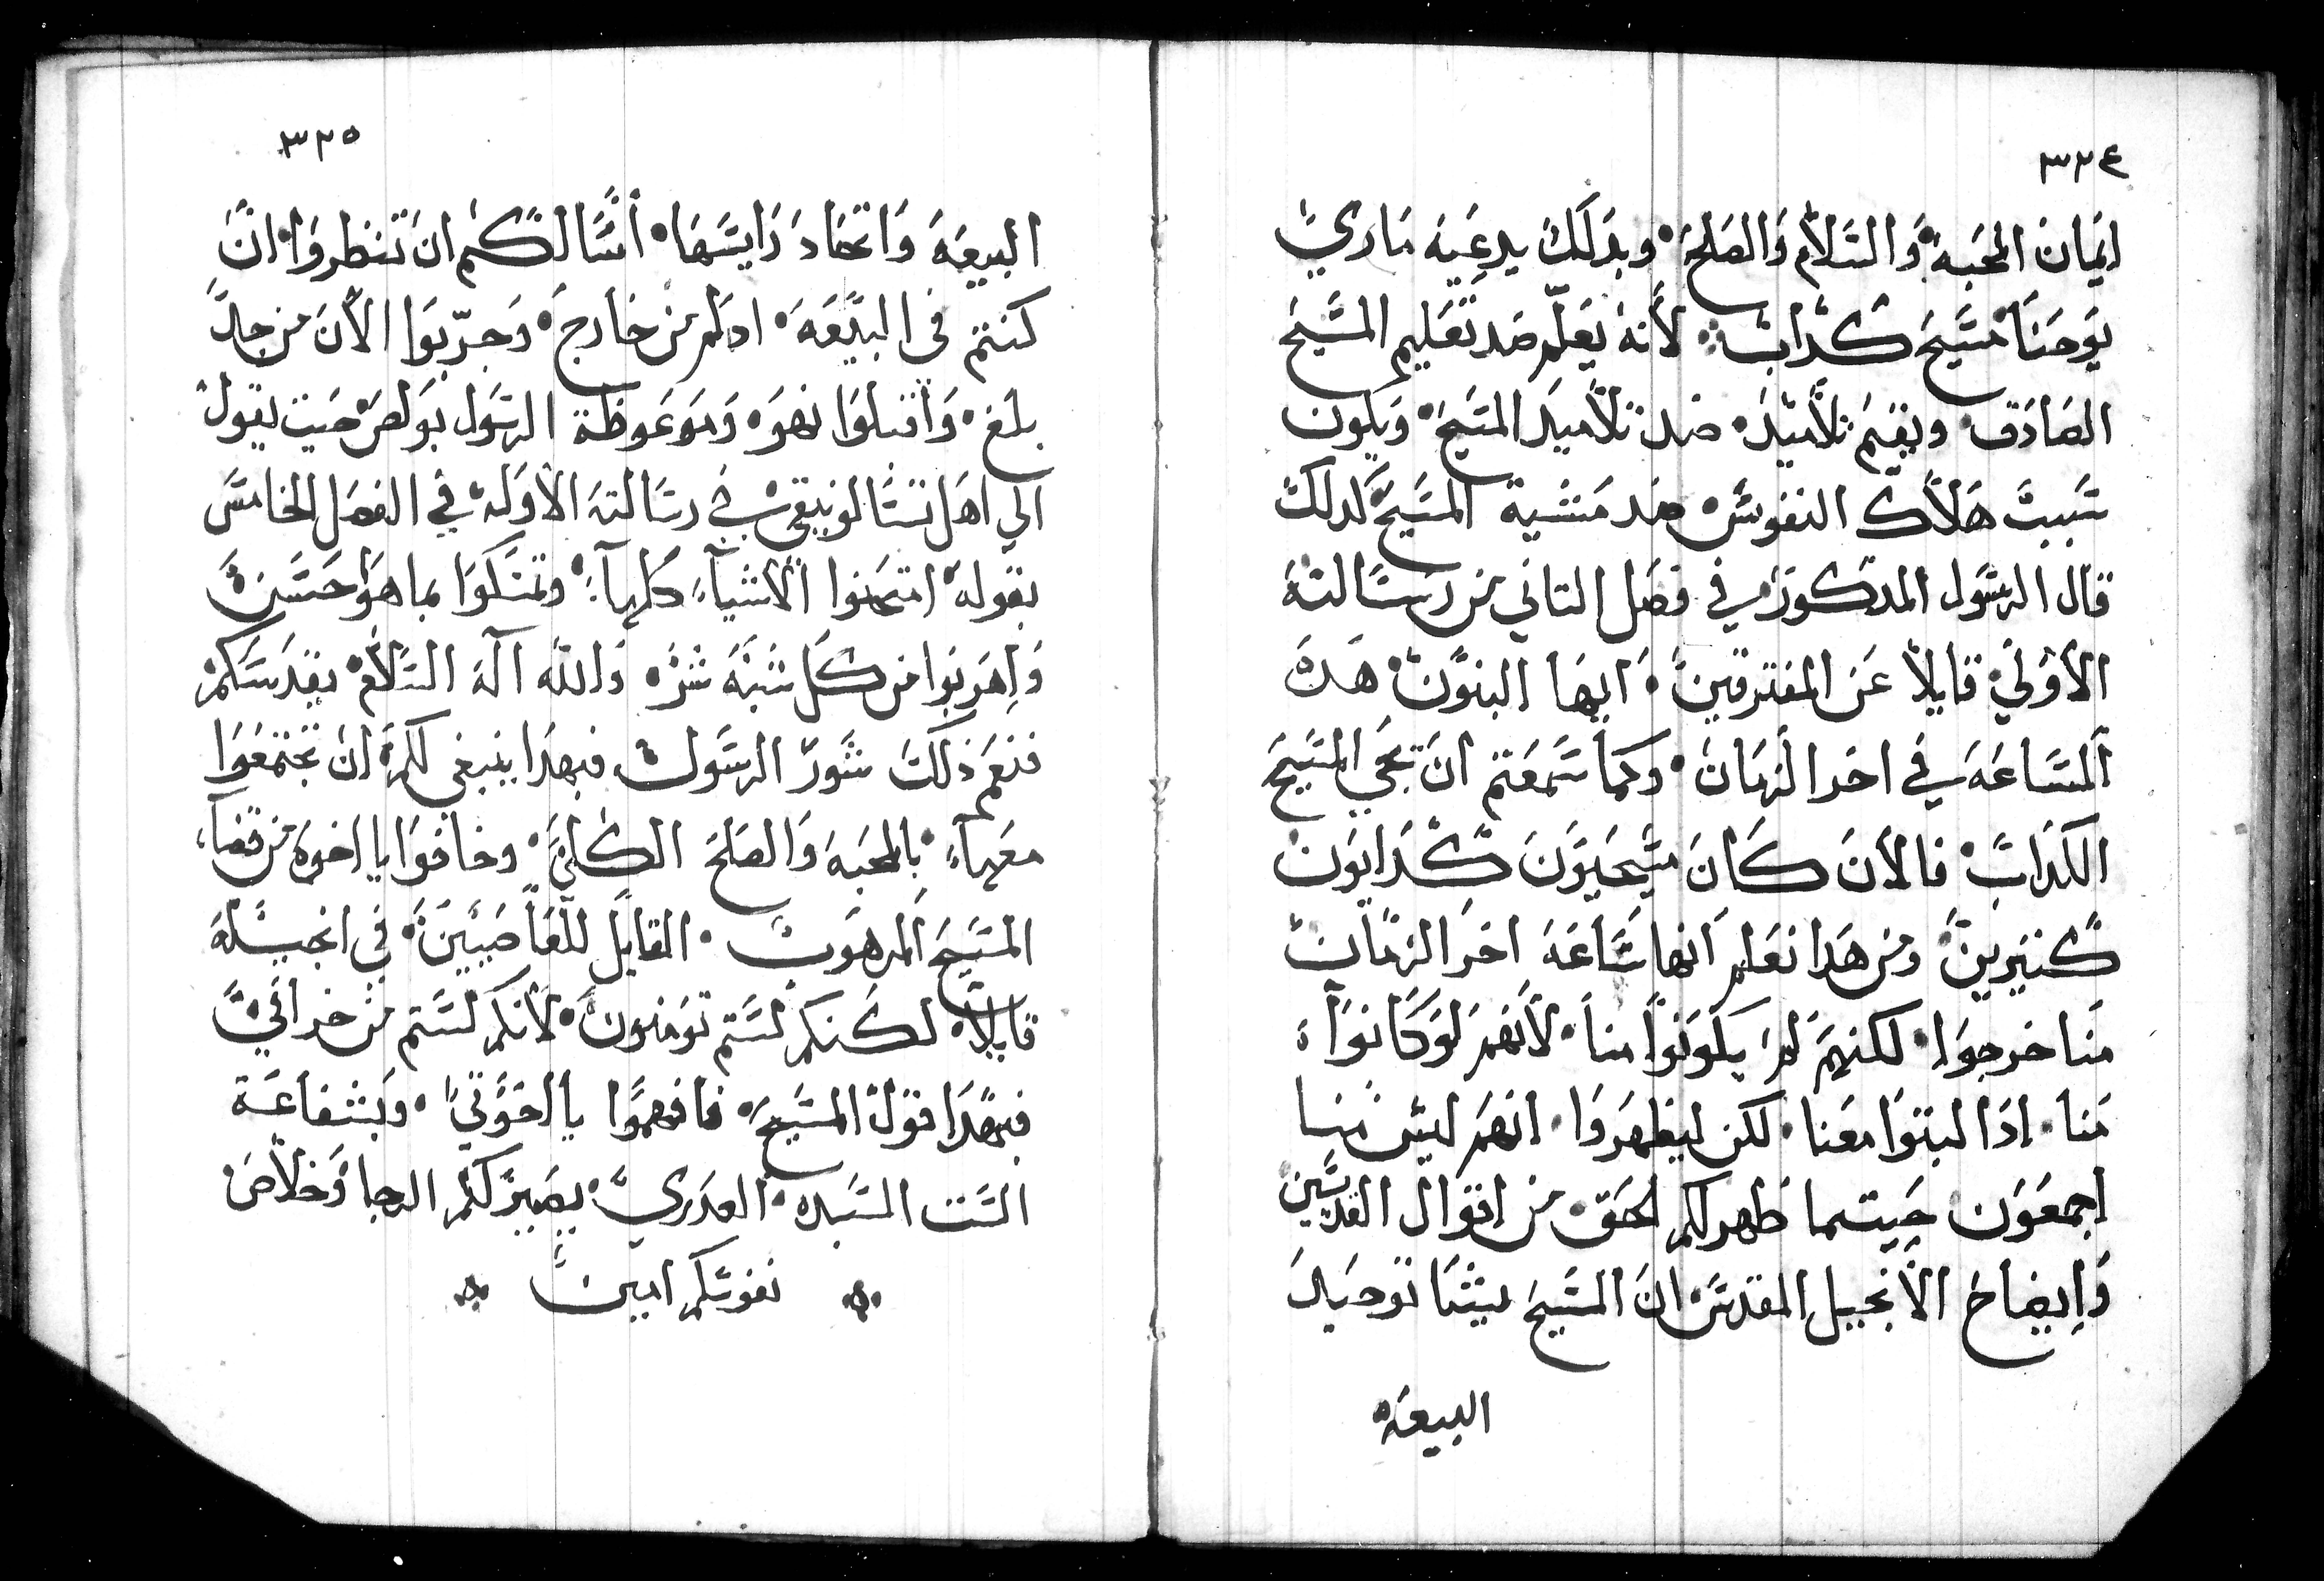 ٣٢٤
ايمان المحبه والسلام والصلح وبدلك يدعيه ماري
يوحنا مسيح كداب لأنه يعلم ضد تعليم المسيح
الصادق ويقيم تلاميد ضد تلاميد المسيح ويكون
سبب هلاك النفوس ضد مشية المسيح لدلك
قال الرسول المدكور في فصل التاني من رسالته
الأولي قايلا عن المفترقين ايها البنون هده
الساعه في اخر الزمان وكما سمعتم ان يجي المسيح
الكداب فالأن كان مسيحيون كدابون
كثيرين ومن هدا نعلم انها ساعه اخر الزمان
منا خرجوا لكنهم لم يكونوا منا لأنهم لو كانوا
منا ادا لبتوا معنا لكن ليظهروا انهم ليس منا
اجمعون حيتما ظهر لكم الحق من اقوال القديسين
وايضاح الأنجيل المقدس ان المسيح يشا توحيد
البيعه
٣٢٥
البيعه واتحاد رايسها أسالكم ان تنظروا ان
كنتم في البيعه ام لم من خارج وجربوا الأن من جل
بلغ واقبلوا نهوه وموعوظة الرسول بولص حيت يقول
الي اهل تسالونيقي في رسالته الأوله في الفصل الخامس
بقوله امتحنوا الأشياء كلها وتمسكوا بما هوا حسن
واهربوا من كل شبه شر والله اله السلام يقدسكم
فنعم ذلك شور الرسول فبهدا ينبغي لكم ان تجتمعوا
معها بالمحبه والصلح الكلي وخافوا يا اخوه من قضا
المسيح المرهوب القايل للعاصيين في انجيله
قايلا لكنكم لستم تومنون لأنكم لستم من خرافي
فبهدا قول المسيح فافهموا يا اخوتي وبشفاعة
الست السيده العدري يصير لكم الرجا وخلاص
نفوسكم امين